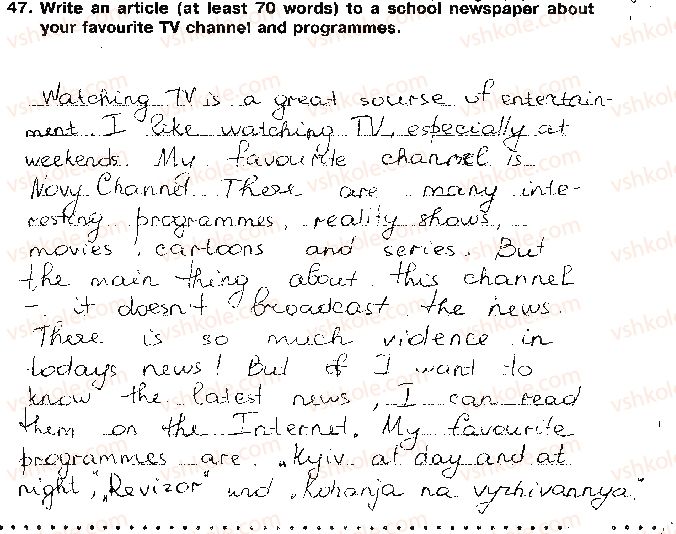 47. Write an article (at least 70 words) to a school newspaper about
your favourite TV channel and programmes.
Watching TV is a great sourse of entertain-
ment. I like watching TV, especially at
weekends. My favourite channel is
Novy Channel. There are many inte-
resting programmes, reality shows,
movies, cartoons and series. But
the main thing about this channel
- it doesn't broadcast the news.
There is so much violence in
todays news! But if I want to
know the latest news, I can read
them on the Internet. My favourite
programmes are „Kyiv at day and at
night", „Revizor" and „Kohanja na vyzhivannya."